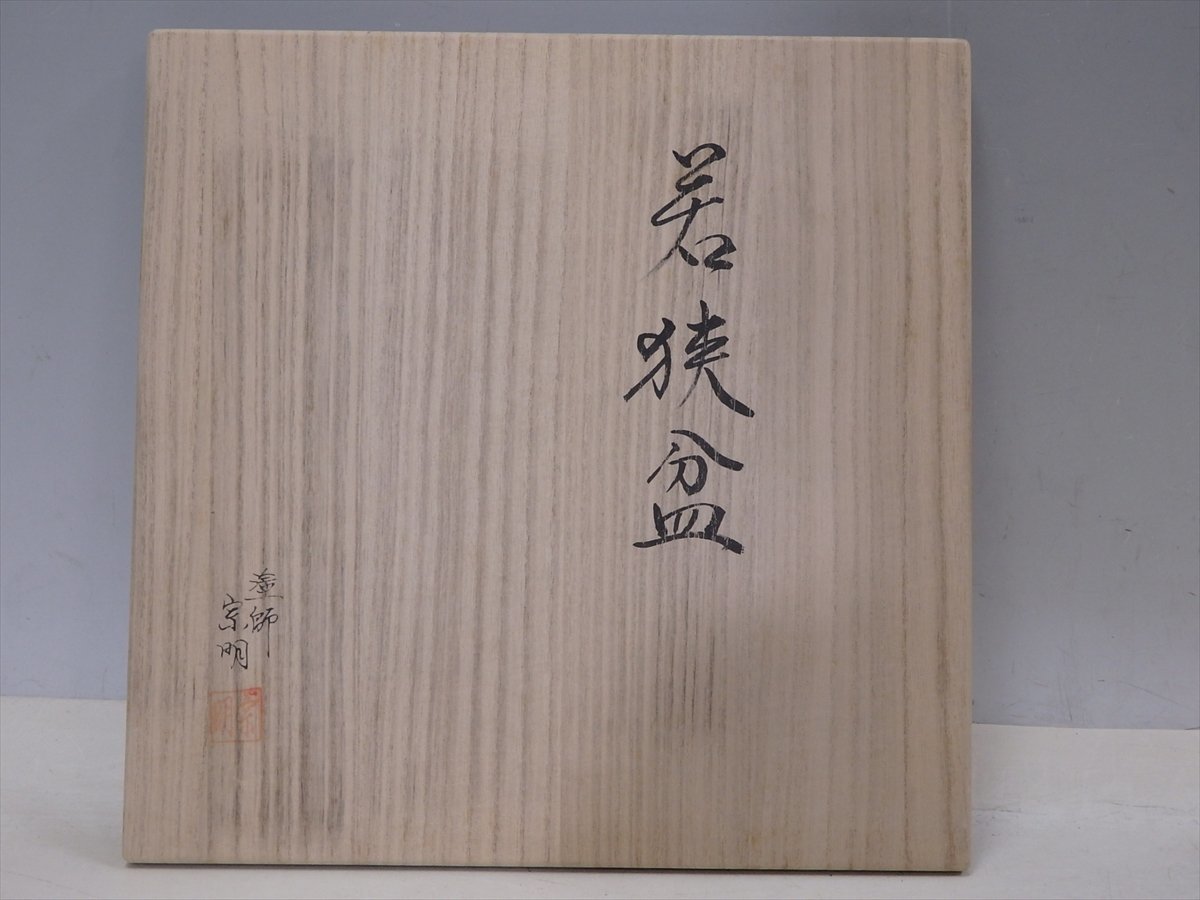 若狭盆
塗師
宗明